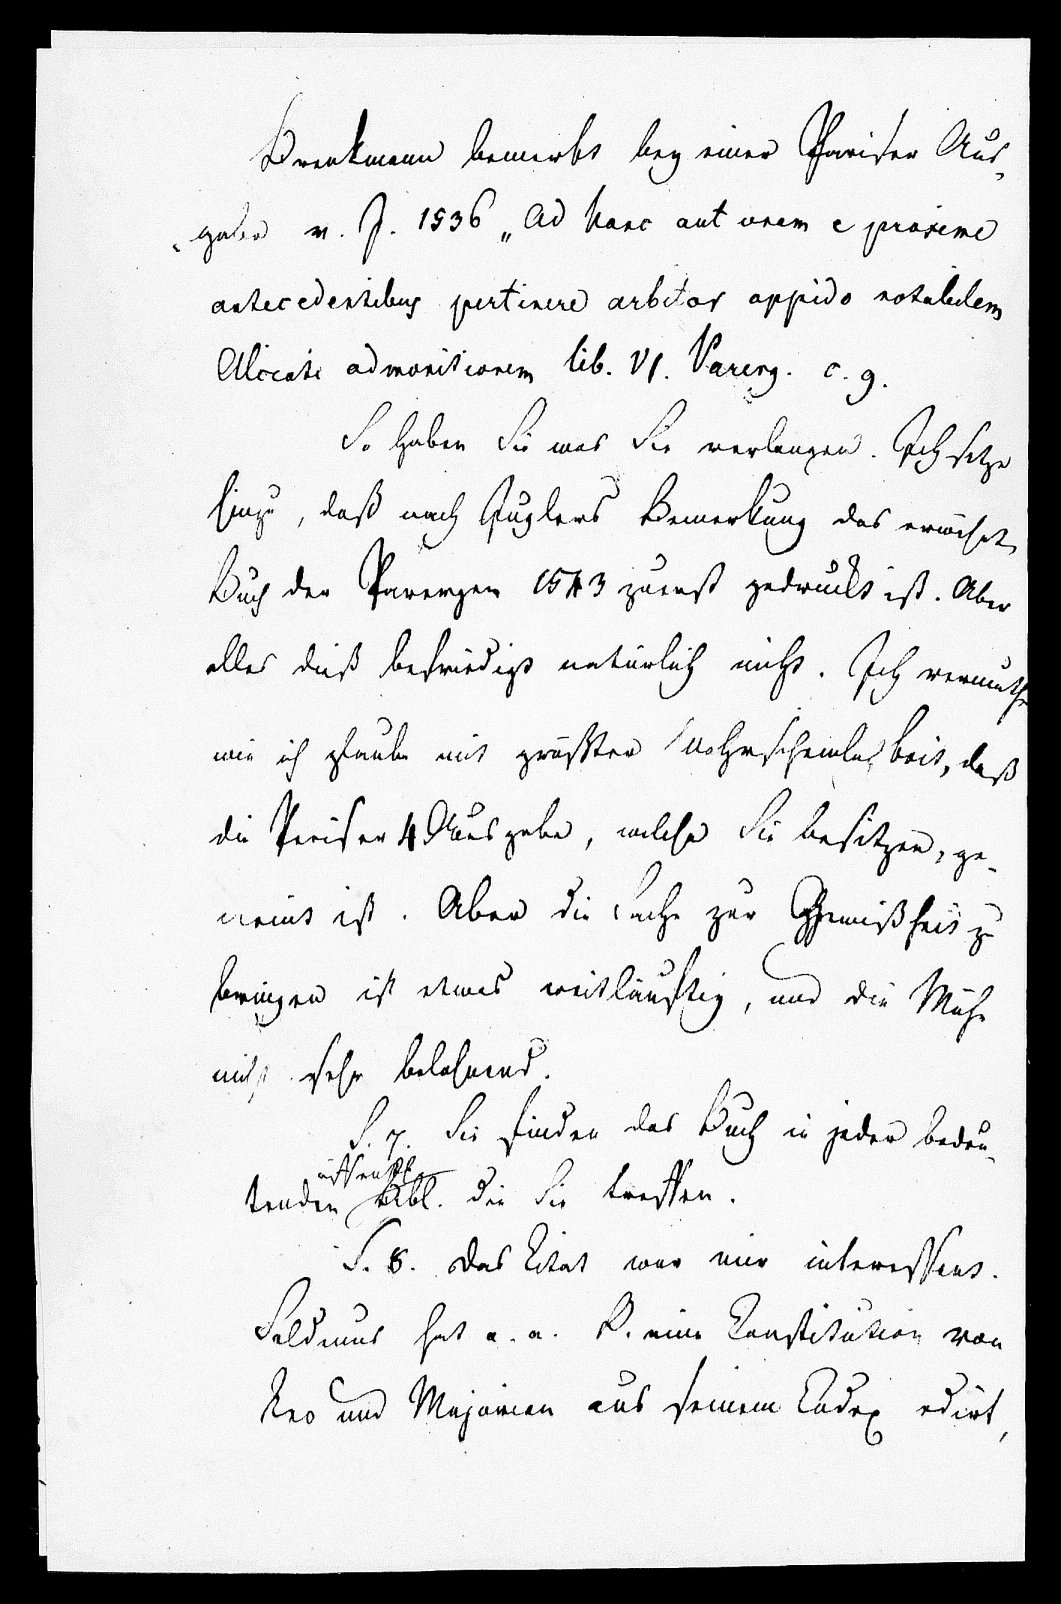 Brenkmann bemerkt bey einer Pariser Aus-
gabe v. J. 1536 „Ad hanc aut unam e proxime
antecedentibus pertinere arbitror oppido notabilem
Alciati admonitionem lib. VI. Parerg. c. 9.
So haben Sie was Sie verlangen. Ich setze
hinzu, daß nach Juglers Bemerkung das erwähnte
Buch der Parergen 1543 zuerst gedruckt ist. Aber
alles dieß befriedigt natürlich nicht. Ich vermuthe
wie ich glaube mit größter Wahrscheinlichkeit, daß
die Pariser 4 Ausgabe, welche Sie besitzen, ge-
meint ist. Aber die Sache zur Gewißheit zu
bringen ist etwas weitläuftig, und die Mühe
nicht sehr belohnend.
S. 7. Sie finden das Buch in jeder bedeu-
öffentl.
tenden Bibl. die Sie treffen.
S. 8. Das Citat war mir interessant.
Seldenus hat a. a. O. eine Constitution von
Leo und Majorian aus seinem Codex edirt,